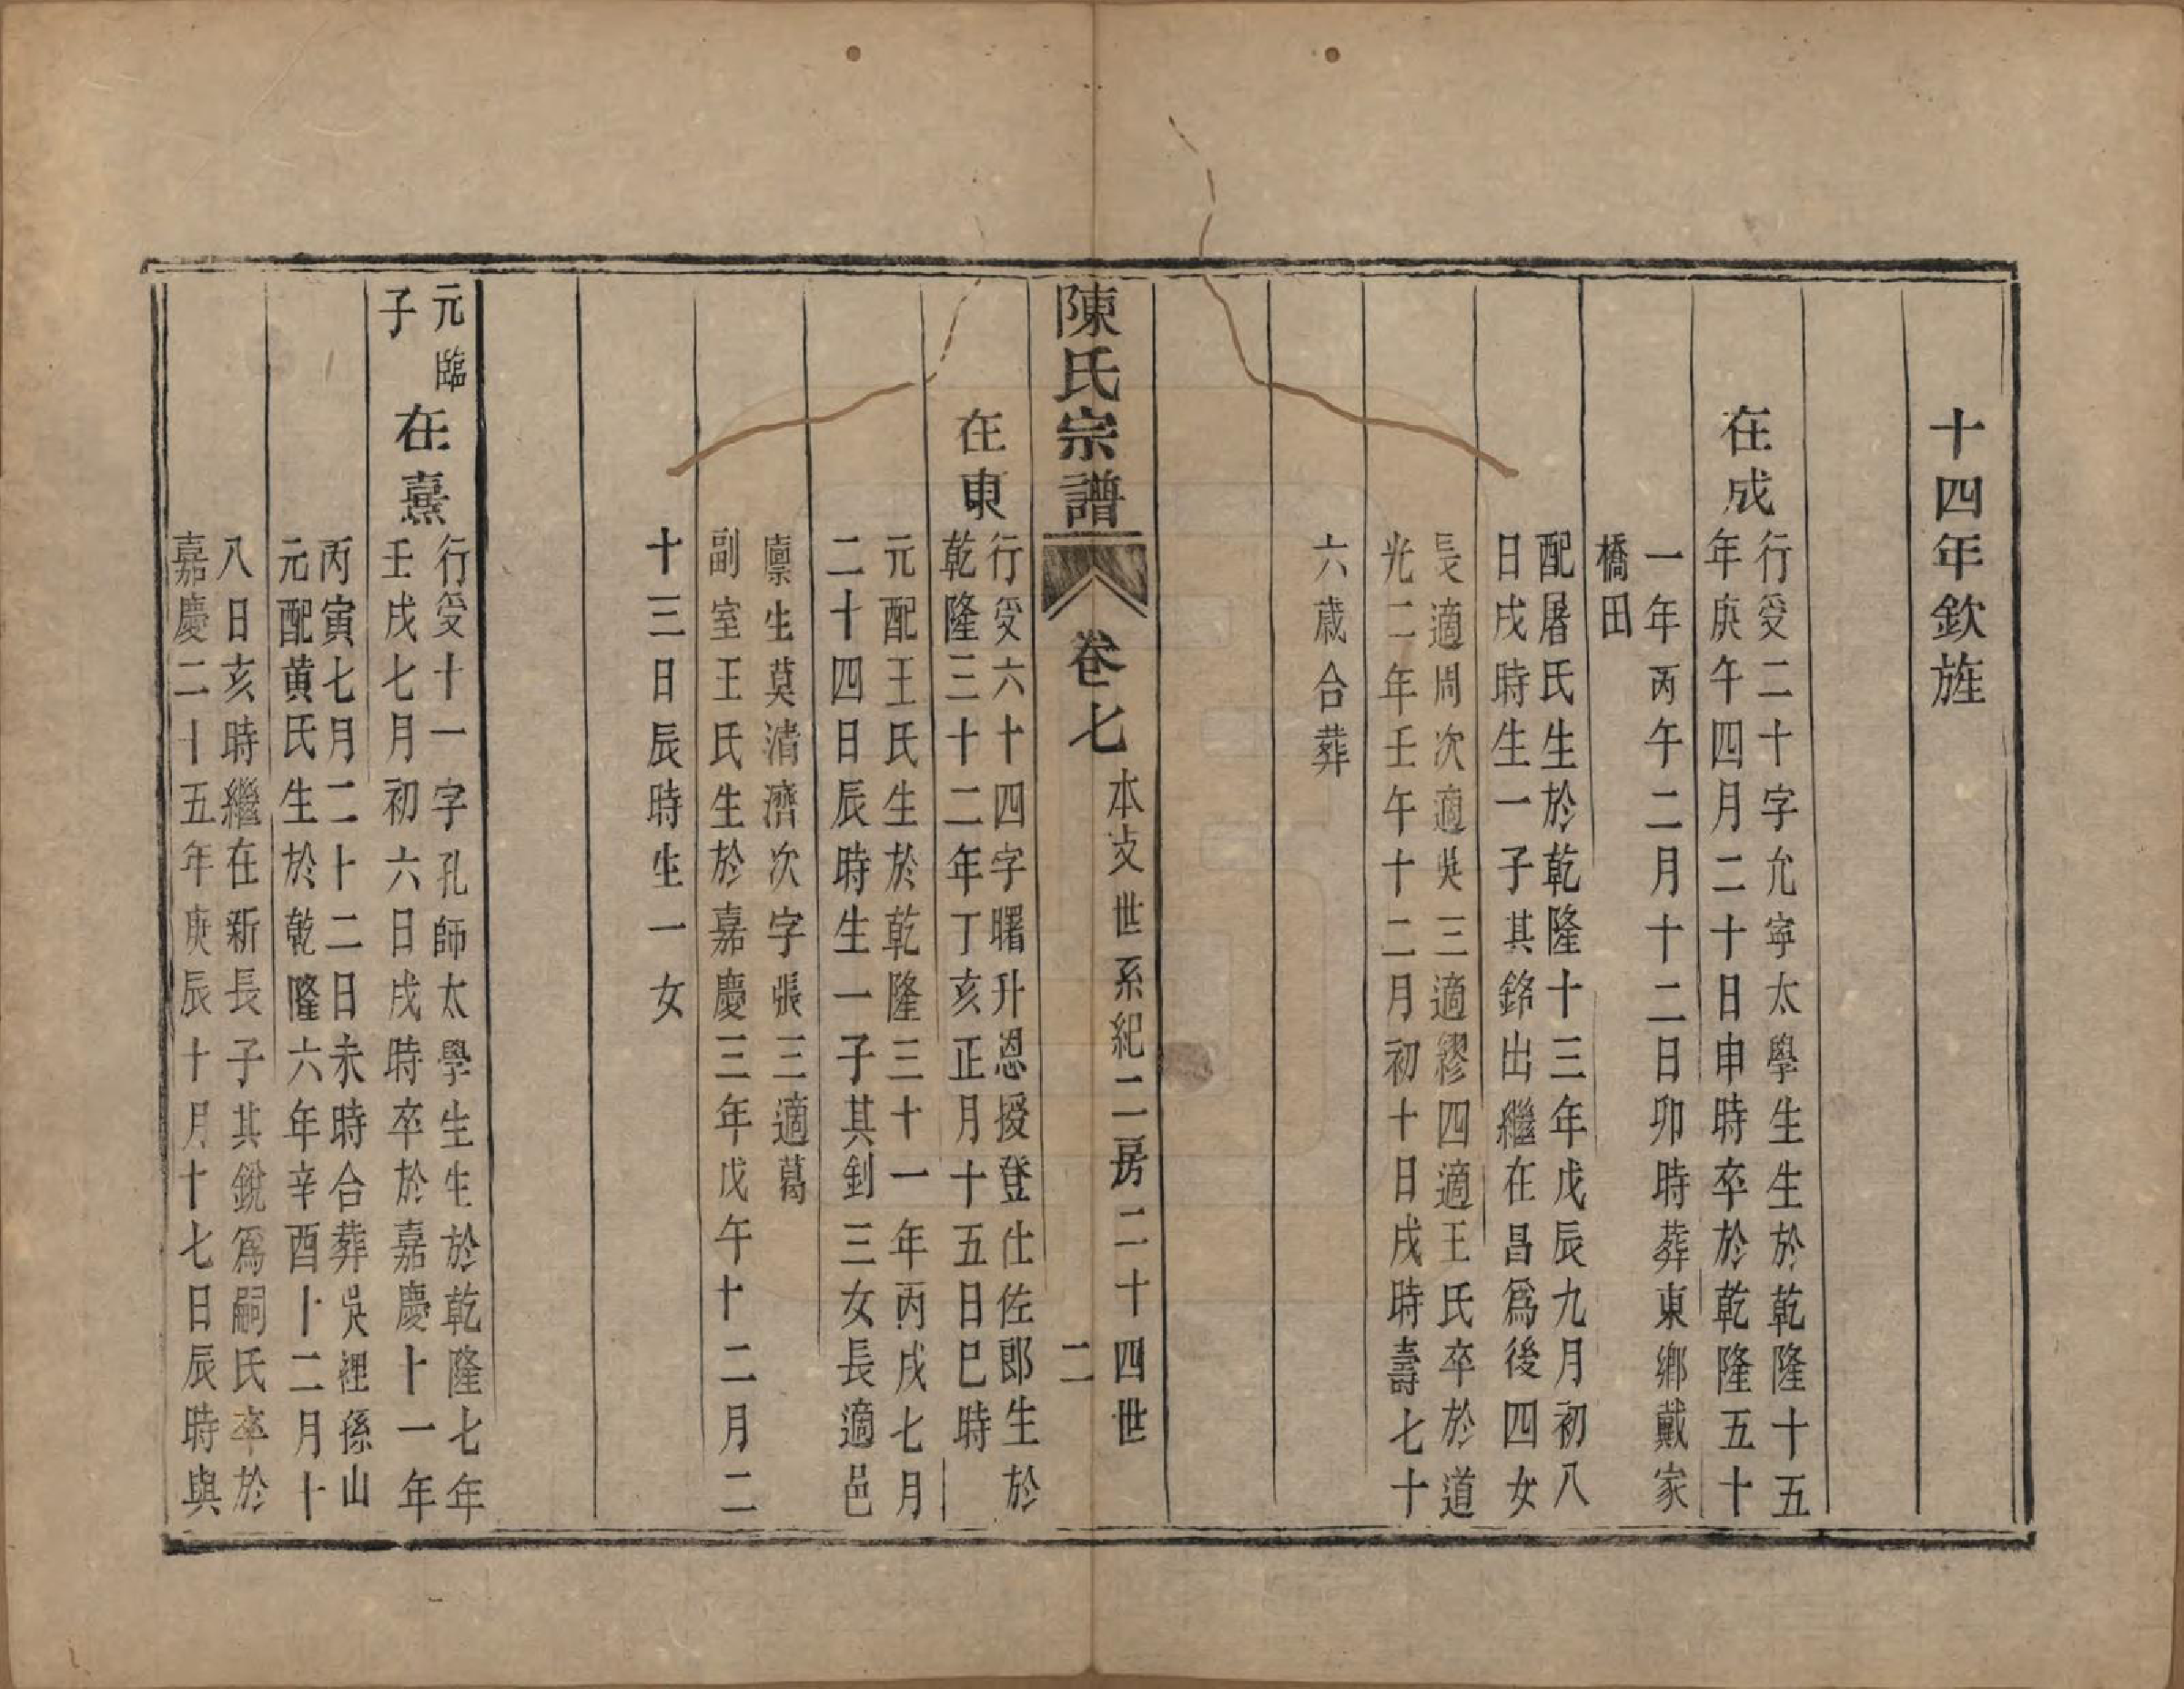 十四年欽旌
在成
行受二十字允寧太學生生於乾隆十五
年庚午四月二十日申時卒於乾隆五十
一年丙午二月十二日卯時葬東鄉戴家
橋田
配屠氏生於乾隆十三年戊辰九月初八
日戌時生一子其銘出繼在昌爲後四女
長適周次適吳三適繆四適王氏卒於道
光二年壬午十二月初十日戌時壽七十
六歲合葬
陳氏宗譜
卷七
本支世系紀二房二十四世
二
在東
行受六十四字曙升恩授登仕佐郎生於
乾隆三十二年丁亥正月十五日巳時
元配王氏生於乾隆三十一年丙戌七月
二十四日辰時生一子其釗三女長適邑
廪生莫清濟次字張三適葛
副室王氏生於嘉慶三年戊午十二月二
十三日辰時生一女
元臨
子
在熹
行受十一字孔師太學生生於乾隆七年
壬戌七月初六日戌時卒於嘉慶十一年
丙寅七月二十二日未時合葬吳裡孫山
元配黃氏生於乾隆六年辛酉十二月十
八日亥時繼在新長子其銳爲嗣氏卒於
嘉慶二十五年庚辰十月十七日辰時與